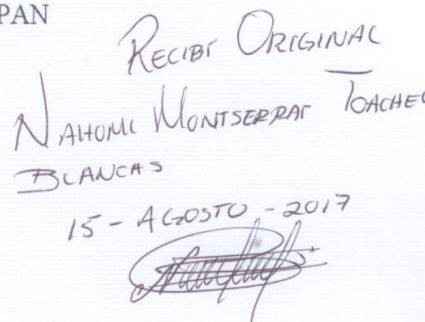 PAN
RECIBI ORIGINAL
NAHOMI MONTSERRAT TOACHE
BLANCAS
15 - AGOSTO - 2017